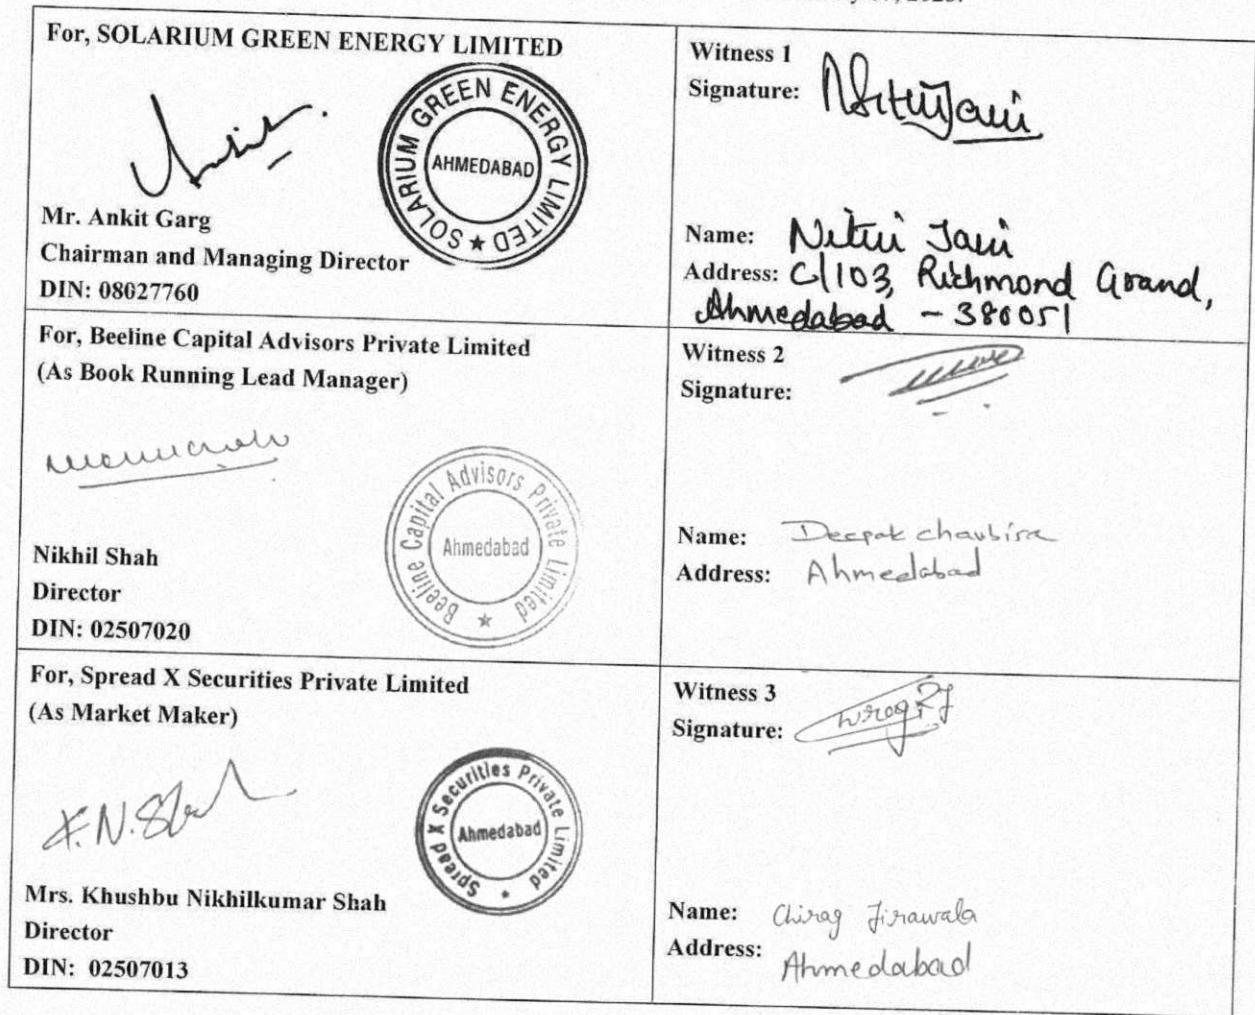 For, SOLARIUM GREEN ENERGY LIMITED
SOLARIUM GREEN ENERGY LIMITED ★
AHMEDABAD
Mr. Ankit Garg
Chairman and Managing Director
DIN: 08027760
Witness 1
Signature:
Name: Nitui Jani
Address: C/103, Richmond Grand,
Ahmedabad - 380051
For, Beeline Capital Advisors Private Limited
(As Book Running Lead Manager)
Beeline Capital Advisors Private Limited ★
Ahmedabad
Nikhil Shah
Director
DIN: 02507020
Witness 2
Signature:
Name: Deepak chaubisa
Address: Ahmedabad
For, Spread X Securities Private Limited
(As Market Maker)
K.N.Shah
Spread X Securities Private Limited ★
Ahmedabad
Mrs. Khushbu Nikhilkumar Shah
Director
DIN: 02507013
Witness 3
Signature:
Name: Chirag Jirawala
Address: Ahmedabad